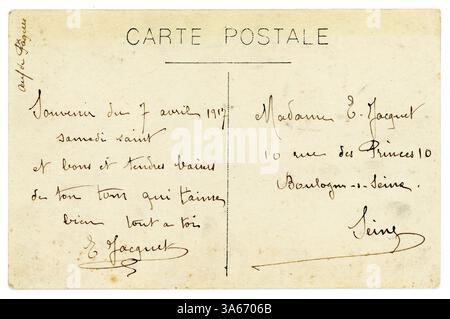 CARTE POSTALE
Souvenir du 7 avril 1917
samedi saint
et bons et tendres baisers
de ton tom qui t'aime
bien tout a toi
E Jacquet
Madame E. Jacquet
10 rue des Princes 10
Boulogne-s-Seine.
Seine
alamy
Image ID: 3A6706B
www.alamy.com